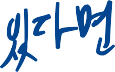 있다면